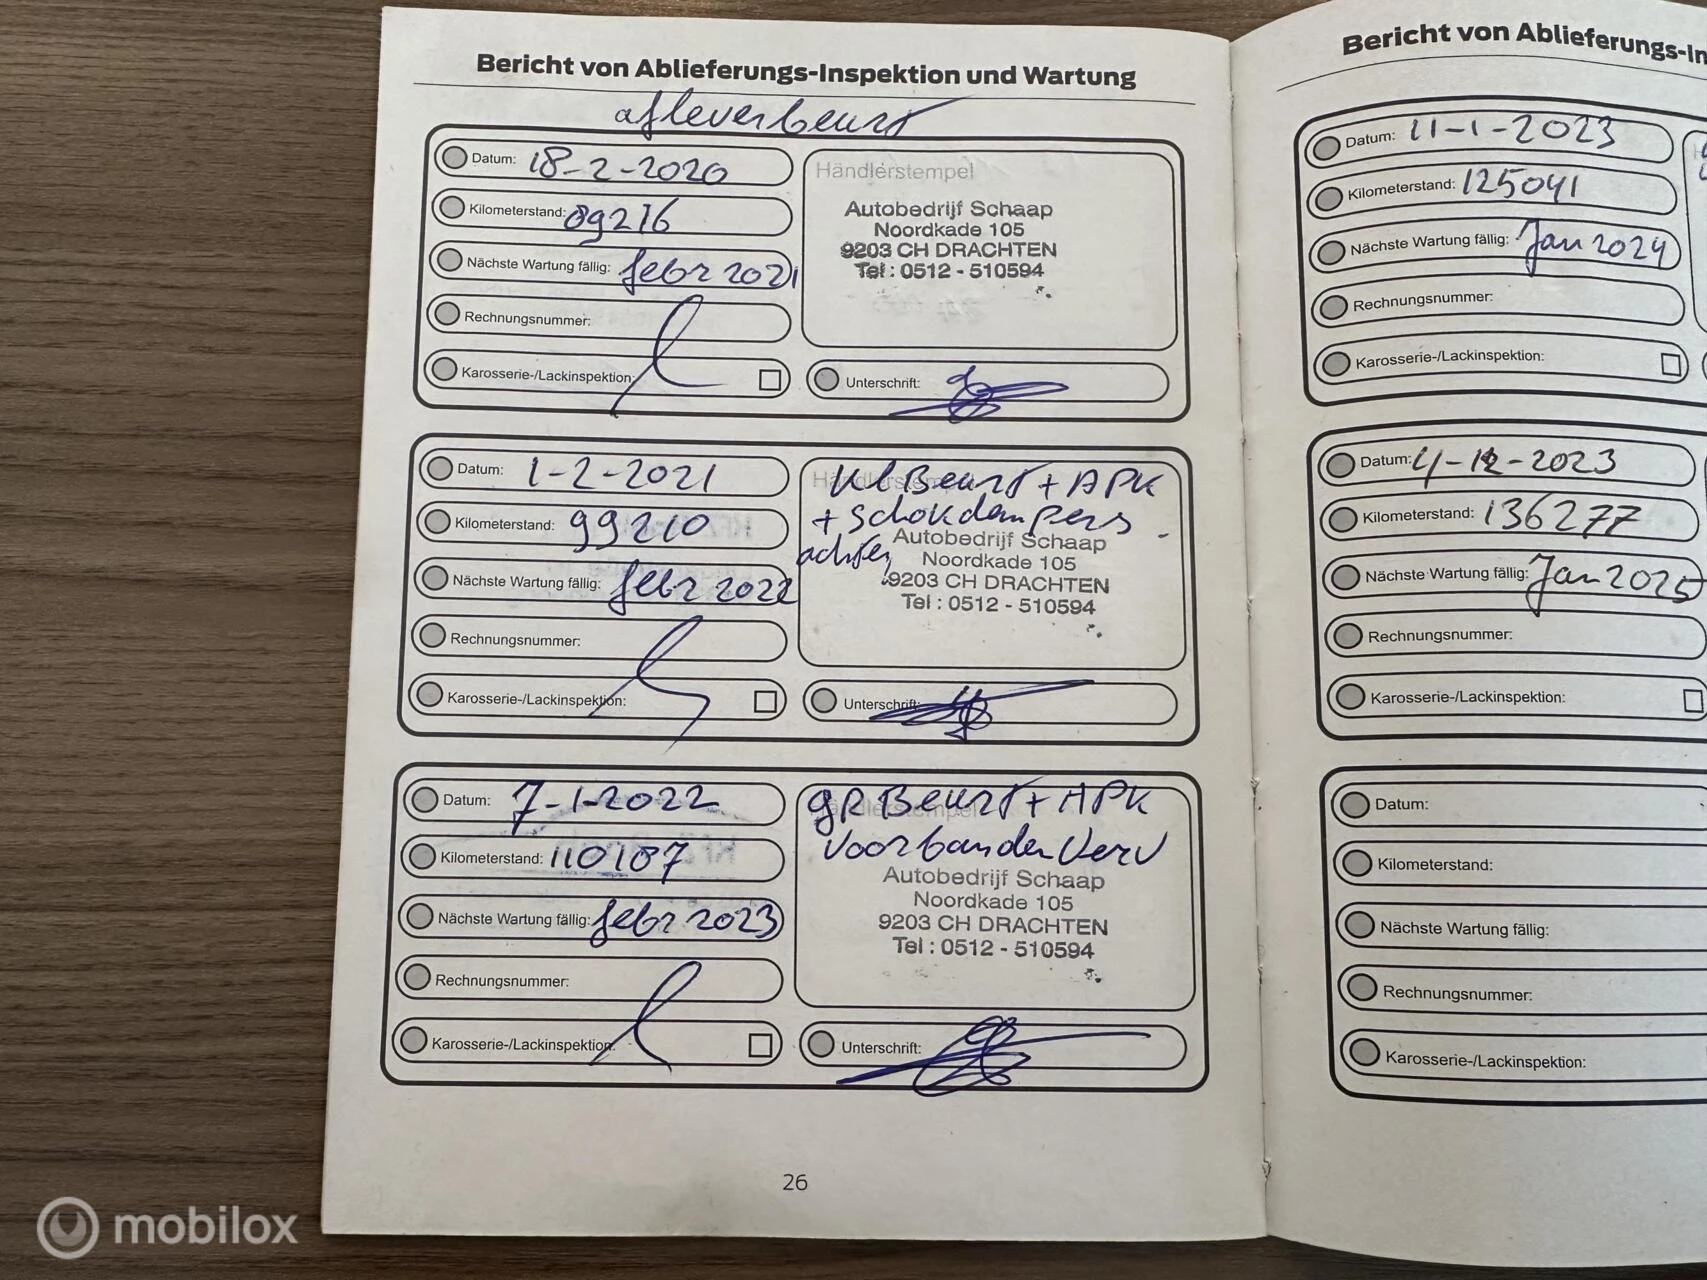 Bericht von Ablieferungs-Inspektion und Wartung
afleverbeurt
Datum: 18-2-2020
Kilometerstand: 89276
Nächste Wartung fällig: febr 2021
Rechnungsnummer:
Karosserie-/Lackinspektion:
Händlerstempel
Autobedrijf Schaap
Noordkade 105
9203 CH DRACHTEN
Tel : 0512 - 510594
Unterschrift:
Datum: 1-2-2021
Kilometerstand: 99210
Nächste Wartung fällig: febr 2022
Rechnungsnummer:
Karosserie-/Lackinspektion:
Händlerstempel
kl Beurt + APK
+ schokdempers
achter
Autobedrijf Schaap
Noordkade 105
9203 CH DRACHTEN
Tel : 0512 - 510594
Unterschrift:
Datum: 7-1-2022
Kilometerstand: 110187
Nächste Wartung fällig: febr 2023
Rechnungsnummer:
Karosserie-/Lackinspektion:
Händlerstempel
gr Beurt + APK
voorbanden verv
Autobedrijf Schaap
Noordkade 105
9203 CH DRACHTEN
Tel : 0512 - 510594
Unterschrift:
26
Bericht von Ablieferungs-In
Datum: 11-1-2023
Kilometerstand: 125041
Nächste Wartung fällig: Jan 2024
Rechnungsnummer:
Karosserie-/Lackinspektion:
Datum: 4-12-2023
Kilometerstand: 136277
Nächste Wartung fällig: Jan 2025
Rechnungsnummer:
Karosserie-/Lackinspektion:
Datum:
Kilometerstand:
Nächste Wartung fällig:
Rechnungsnummer:
Karosserie-/Lackinspektion:
mobilox